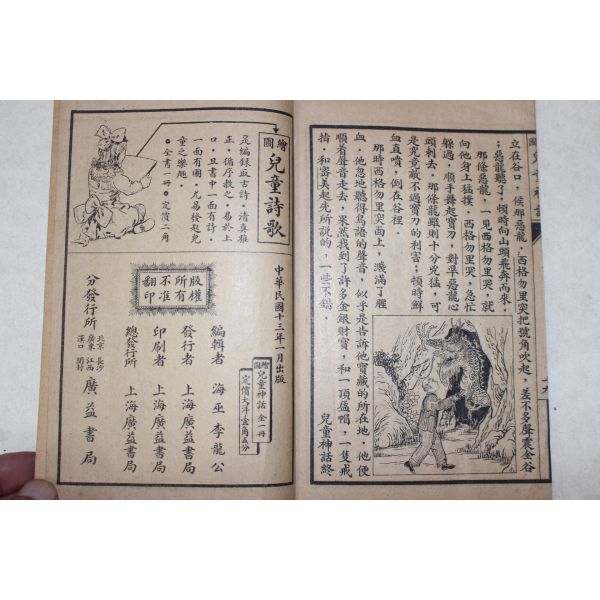 立在谷口。侯那惡龍，西格勿里突把號角吹起，差不多聲震金谷
；惡龍聽了，頓時向山頭飛奔而來，
那條惡龍，一見西格勿里哭，就
向他身上猛撲，西格勿里突，急忙
躲過，順手舞起寶刀，對準惡龍心
頭刺去，那條龍雖則十分兇猛，可
是究竟敵不過寶刀的利害；頓時鮮
血直噴，倒在谷裡．
那時西格勿里突面上，濺滿了腥
血，他忽地聽得鳥語的聲音，似乎是告訴他寶藏的所在地，他便
順着聲音走去，果然找到了許多金銀財寶，和一頂盔帽，一隻戒
指，和審美起先所說的，一些不錯．
兒童神話終
中華民國十三年一月出版
繪圖 兒童神話 全一冊
定價大洋 角五分
編輯者 海巫李龍公
發行者 上海廣益書局
印刷者 上海廣益書局
總發行所 上海廣益書局
版權所有不准翻印
分發行所 北京 長沙 廣東 江西 漢口 開封 廣益書局
繪圖 兒童詩歌
是編錄取古詩，清真雅
正，循序教之，易於上
口，且書中一面有詩，
一面有圖，尤易發起兒
童之樂趣．
全書一冊 定價二角